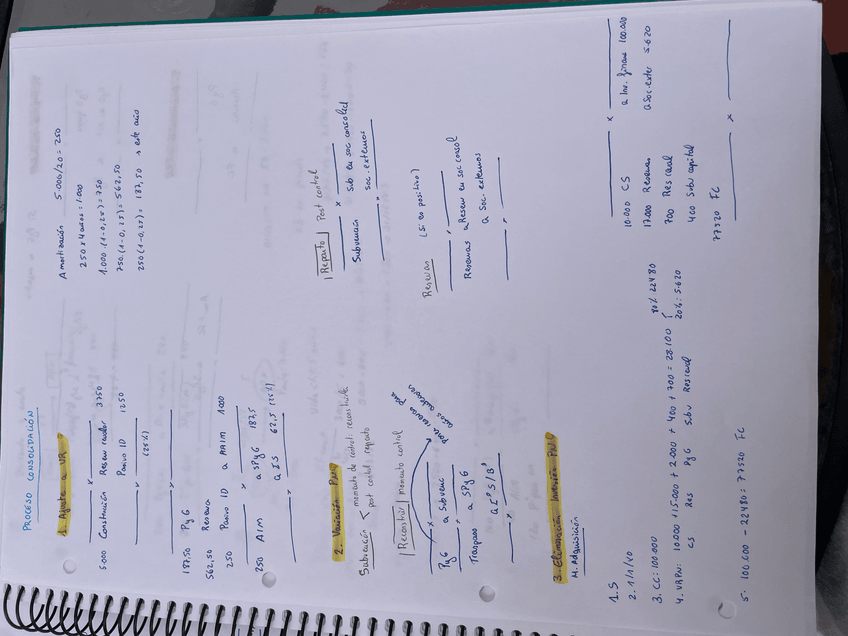 PROCESO CONSOLIDACIÓN
1. Ajuste a VR
5.000 Construcción Reserv revalor 3750
Pasivo ID 1250
(25%)
187,50 PyG
562,50 Reserva
250 Pasivo ID a AAIM 1000
250 AIM a SPyG 187,5
a IS 62,5 (25%)
Amortización 5.000/20 = 250
250 x 4 años = 1.000
1.000 (1-0,25) = 750
750. (1-0,25) = 562,50
250 (1-0,25) = 187,50 → este año
2. Variación PN
Subvención < momento de control: reconstruir
post control: reparto
Reconstruir momento control
PyG a Subvenc
Traspaso a SPyG
a I° S/B°
para reservas para
años anteriores
Reparto Post control
Subvención a Sub en soc consolid
soc. externos
Reservas (Si es positivo)
Reservas a Reserv en soc consol
a Soc. externos
3. Eliminación Inversión PN
M. Adquisición
1. S
2. 1/1/10
3. CC: 100.000
4. VRPN: 10.000 + 15.000 + 2.000 + 400 + 700 = 28.100 { 80% 22480
20%: 5.620
CS Res PyG Subv Res reval
5. 100.000 - 22480 = 77520 FC
10.000 CS a Inv. financ 100.000
17.000 Reserva a Soc. exter 5.620
700 Res reval
400 Subv capital
77520 FC